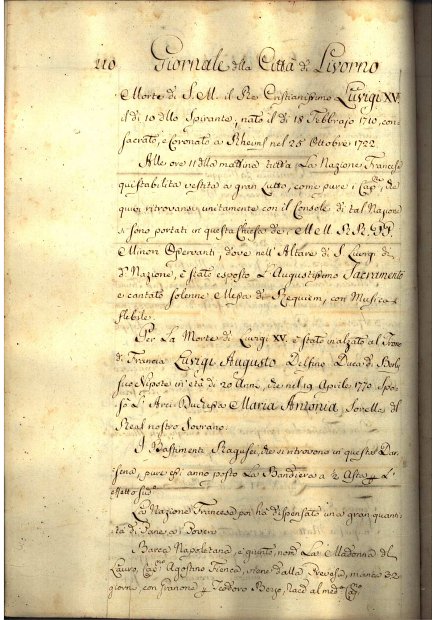 110 Giornale della Città di Livorno
Morte di S. M. il Re Cristianissimo Luvigi XV.
il dì 10 dllo Spirante, nato il dì 18 Febbrajo 1710, con-
sacrato, e Coronato a Rheims nel 25 Ottobre 1722.
Alle ore 11 dlla mattina tutta La Nazione Francese
qui stabilita vestita a gran Lutto, come pure i Cap.ni, che
quivi ritrovansi, unitamente con il Console di tal Nazione
si sono portati in questa Chiesa de MM. RR. PP.
Minori Osservanti, d'ove nell'Altare di S. Luvigi di
dª Nazione, è stato esposto L'Augustissimo Sacramento
e cantato solenne Messa di Requiem, con Musica
flebile.
Per La Morte di Luvigi XV. è stato inalzato al Trono
di Francia Luvigi Augusto Delfino Duca di Berly
suo Nipote in età di 20 Anni, che nel 19 Aprile 1770 spo-
sò L'Arci-Duchessa Maria Antonia, Sorella del
Real nostro Sovrano.
I Bastimenti Ragusei, che si ritrovono in questa Dar-
sena, pure essi anno posto La Bandiera a ½ Asta L'
effetto sud.º
La Nazione Francesa poi ha dispensato una gran quanti-
tà di Pane a' Poveri
Barca Napoletana, è giunto, nom. La Madonna del
Lauro, Cap.no Agostino viene dalla Prevesa, manca 32
giorni, con Granone Teodoro racc. al med.º Cap.no